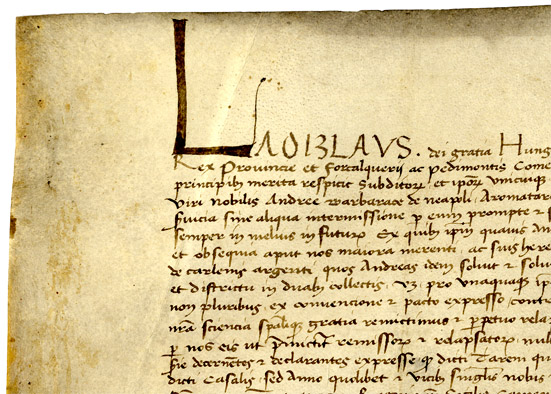 LAOIZLAVS. dei gratia Hung
Rex Provincie et Forcalquerij ac pedimontis Come
principib merita respicit Subditorz et ipoz unicuiqz
viri nobilis Andree Barbarace de neapli Aromatar
fiducia sine aliqua intermissione p eum prompte z
semper in melius in futurz Ex quib ipm quavis An
et obsequia aput nos maiora merenti ac suis here
de carlenis argenti quos Andreas idem solvit z solv
et districtu in duab collectis vz pro unaquaqz
non pluribus ex convencione z pacto expresso contr
nra sciencia spaliqz gratia remictimus z ppetuo rela
p nos eis ut remissorz z relapsatorz null
decernetes z declarantes expresse dicti Tarem
dicti Casalis sed Anno quolibet z vicib singlis nobis